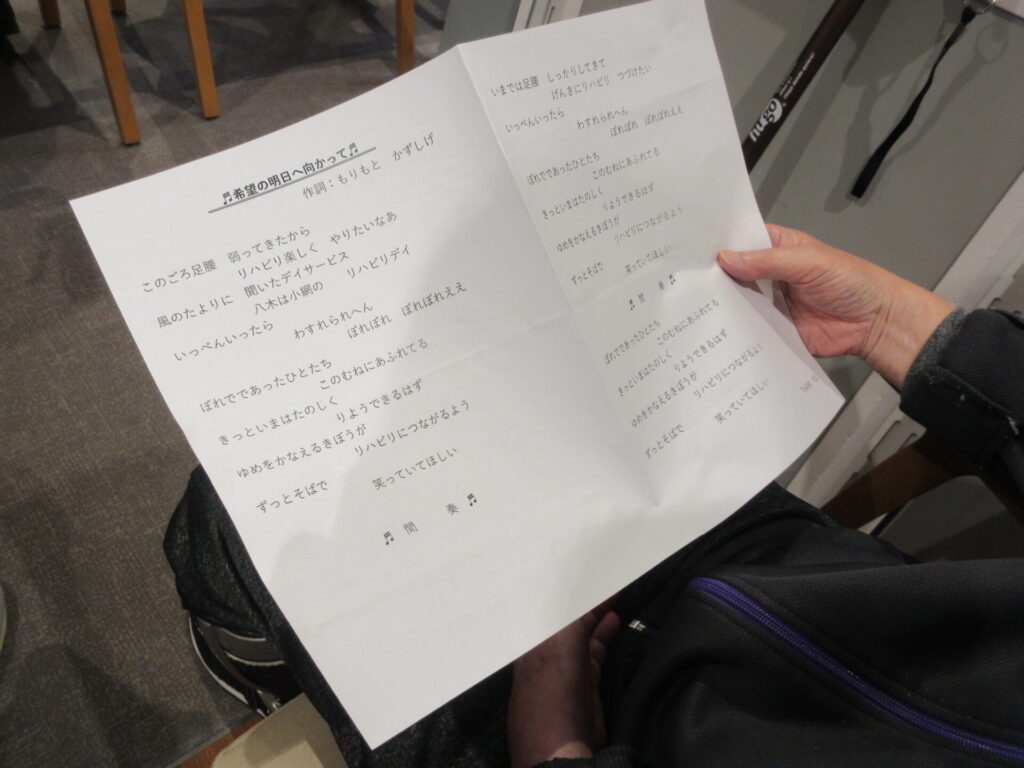 ♫希望の明日へ向かって♫
作詞：もりもと　かずしげ
このごろ足腰　弱ってきたから
リハビリ楽しく　やりたいなあ
風のたよりに　聞いたデイサービス
八木は小網の　リハビリデイ
いっぺんいったら　わすれられへん
ぽれぽれ　ぽれぽれええ
ぽれでであったひとたち
このむねにあふれてる
きっといまはたのしく
りようできるはず
ゆめをかなえるきぼうが
リハビリにつながるよう
ずっとそばで　笑っていてほしい
♫ 間　奏 ♫
いまでは足腰　しっかりしてきて
げんきにリハビリ　つづけたい
いっぺんいったら　わすれられへん
ぽれぽれ　ぽれぽれええ
ぽれでであったひとたち
このむねにあふれてる
きっといまはたのしく
りようできるはず
ゆめをかなえるきぼうが
リハビリにつながるよう
ずっとそばで　笑っていてほしい
♫ 間　奏 ♫
ぽれでであったひとたち
このむねにあふれてる
きっといまはたのしく
りようできるはず
ゆめをかなえるきぼうが
リハビリにつながるよう
ずっとそばで　笑っていてほしい
hugo